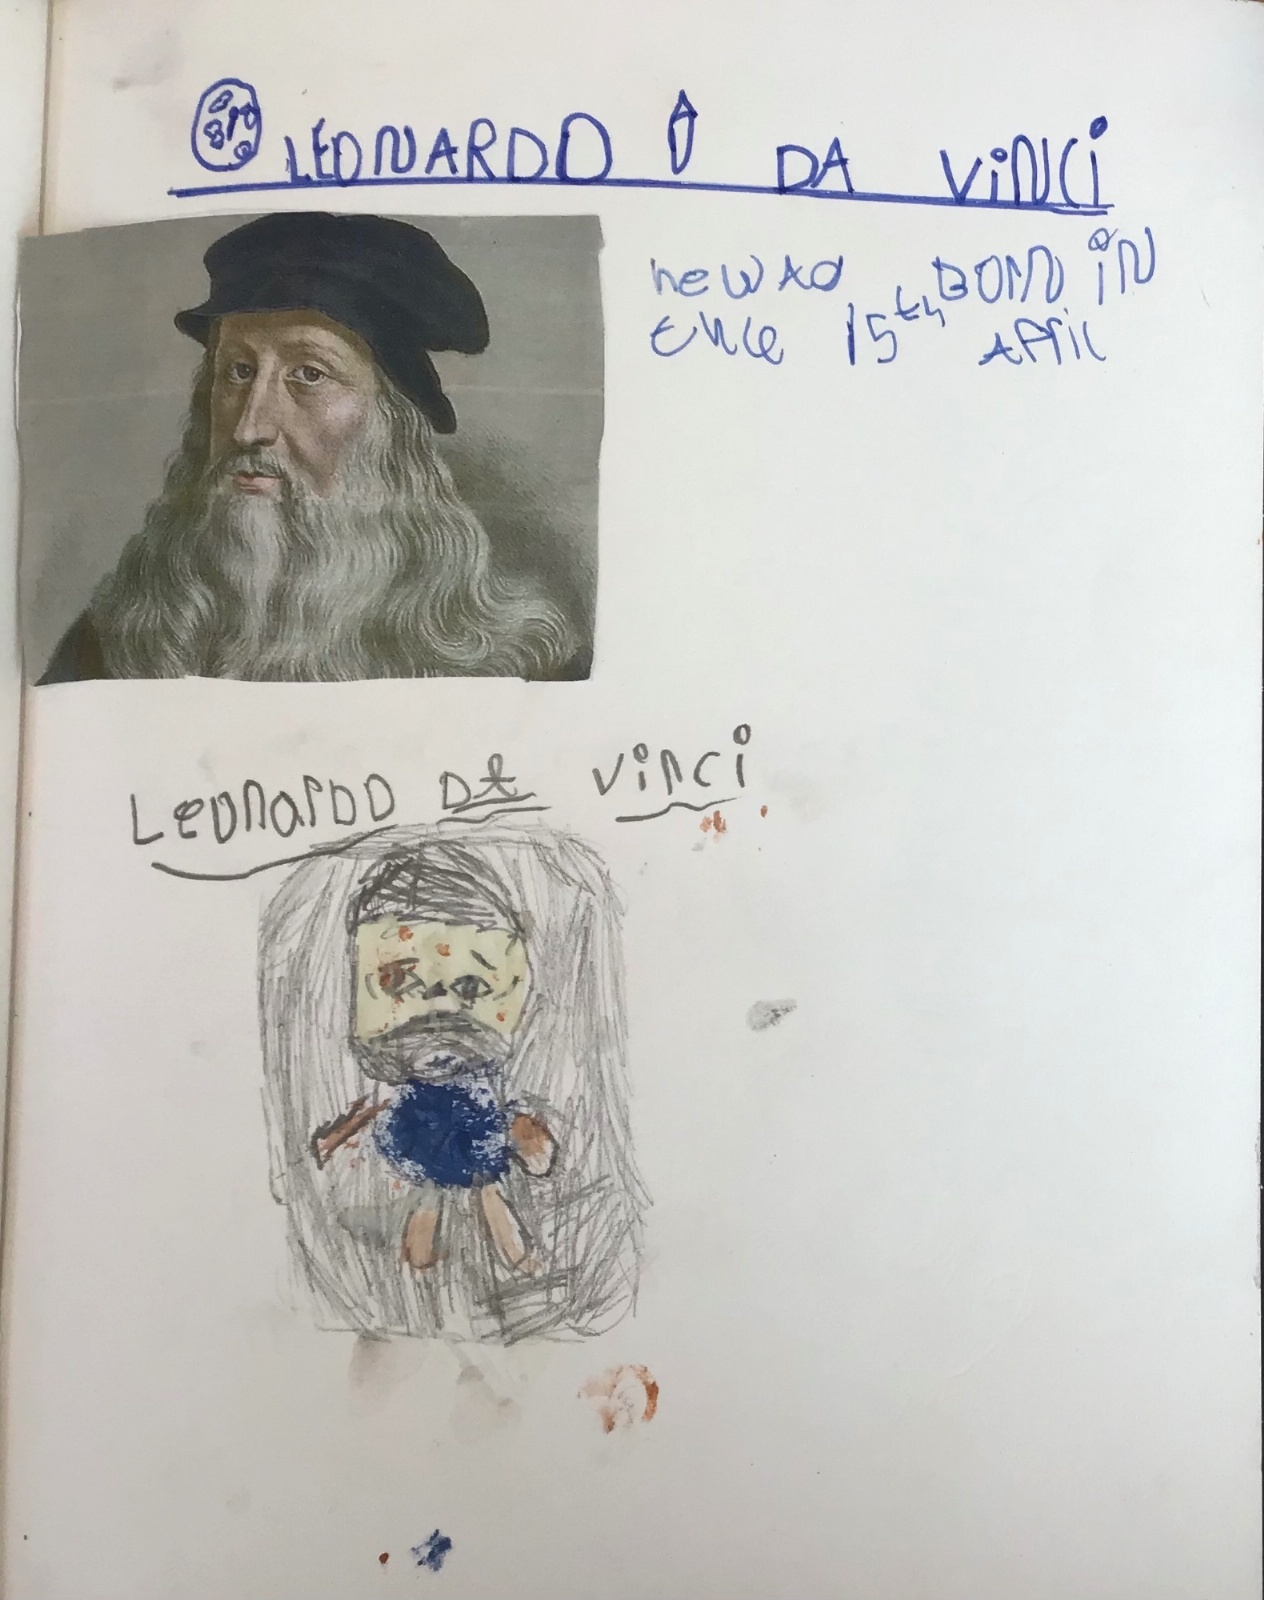 LEONARDO DA ViNCi
he wAd BORN iN
the 15th APril
LeonarDO DA Vinci